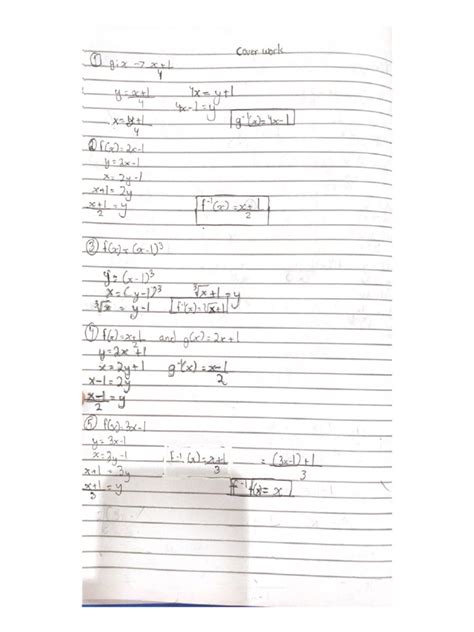 Cover work
① g:x → x+1/4
y = x+1/4    4x = y+1
4x-1 = y
x = y+1/4    g⁻¹(x) = 4x-1
② f(x) = 2x-1
y = 2x-1
x = 2y-1
x+1 = 2y
x+1/2 = y    f⁻¹(x) = x+1/2
③ f(x) = (x-1)³
y = (x-1)³
x = (y-1)³    ³√x+1 = y
³√x = y-1    f⁻¹(x) = ³√x+1
④ f(x) = x+1/2 and g(x) = 2x+1
y = 2x+1
x = 2y+1    g⁻¹(x) = x-1/2
x-1 = 2y
x-1/2 = y
⑤ f(x) = 3x-1
y = 3x-1
x = 3y-1    f⁻¹(x) = x+1/3    = (3x-1)+1/3
x+1 = 3y
x+1/3 = y    f⁻¹f(x) = x